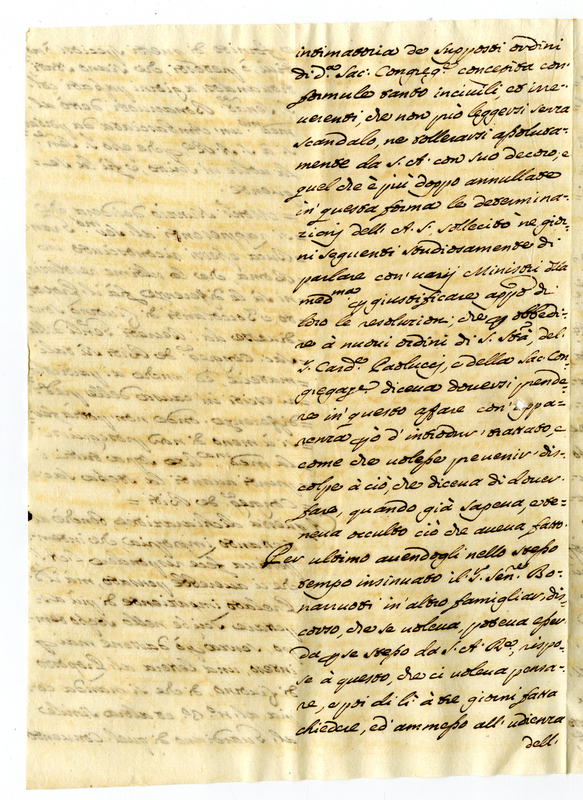 intimatoria de supposti ordini
di d.ᵃ Sac: Congreg.ᵉ concepita con
formule tanto incivili, et irre-
verenti, che non può leggersi senza
scandalo, ne tollerarsi assoluta-
mente da S. A. con suo decoro, e
quel che è più doppo annullate
in questa forma le determina-
zionj dell'A. S. sollecitò ne gior-
ni seguenti studiosamente di
parlare con varij Ministri della
med.ᵐᵃ p giustificare app.º di
loro le resoluzioni, che p obbedi-
re à nuovi ordini di S. Stà, del
S. Card.ᵉ Paolucci, e della Sac: Con-
gregaz.ᵉ diceva doversi prende-
re in questo affare con appa-
renza p d'introdur trattato, e
come che volesse prevenir dis-
colpe à ciò, che diceva di dover
fare, quando già sapeva, e te-
neva occulto ciò che aveva fatto.
Per ultimo avendogli nello stesso
tempo insinuato il S. Sen.ʳᵉ Bo-
narruoti in altro famigliar dis-
corso, che se voleva, poteva esser
da p se stesso da S. A. R.ᵉ, rispo-
se à questo, che ci voleva pensa-
re, e poi di lì à tre giorni fatta
chiedere, ed ammesso all'udienza
dell'